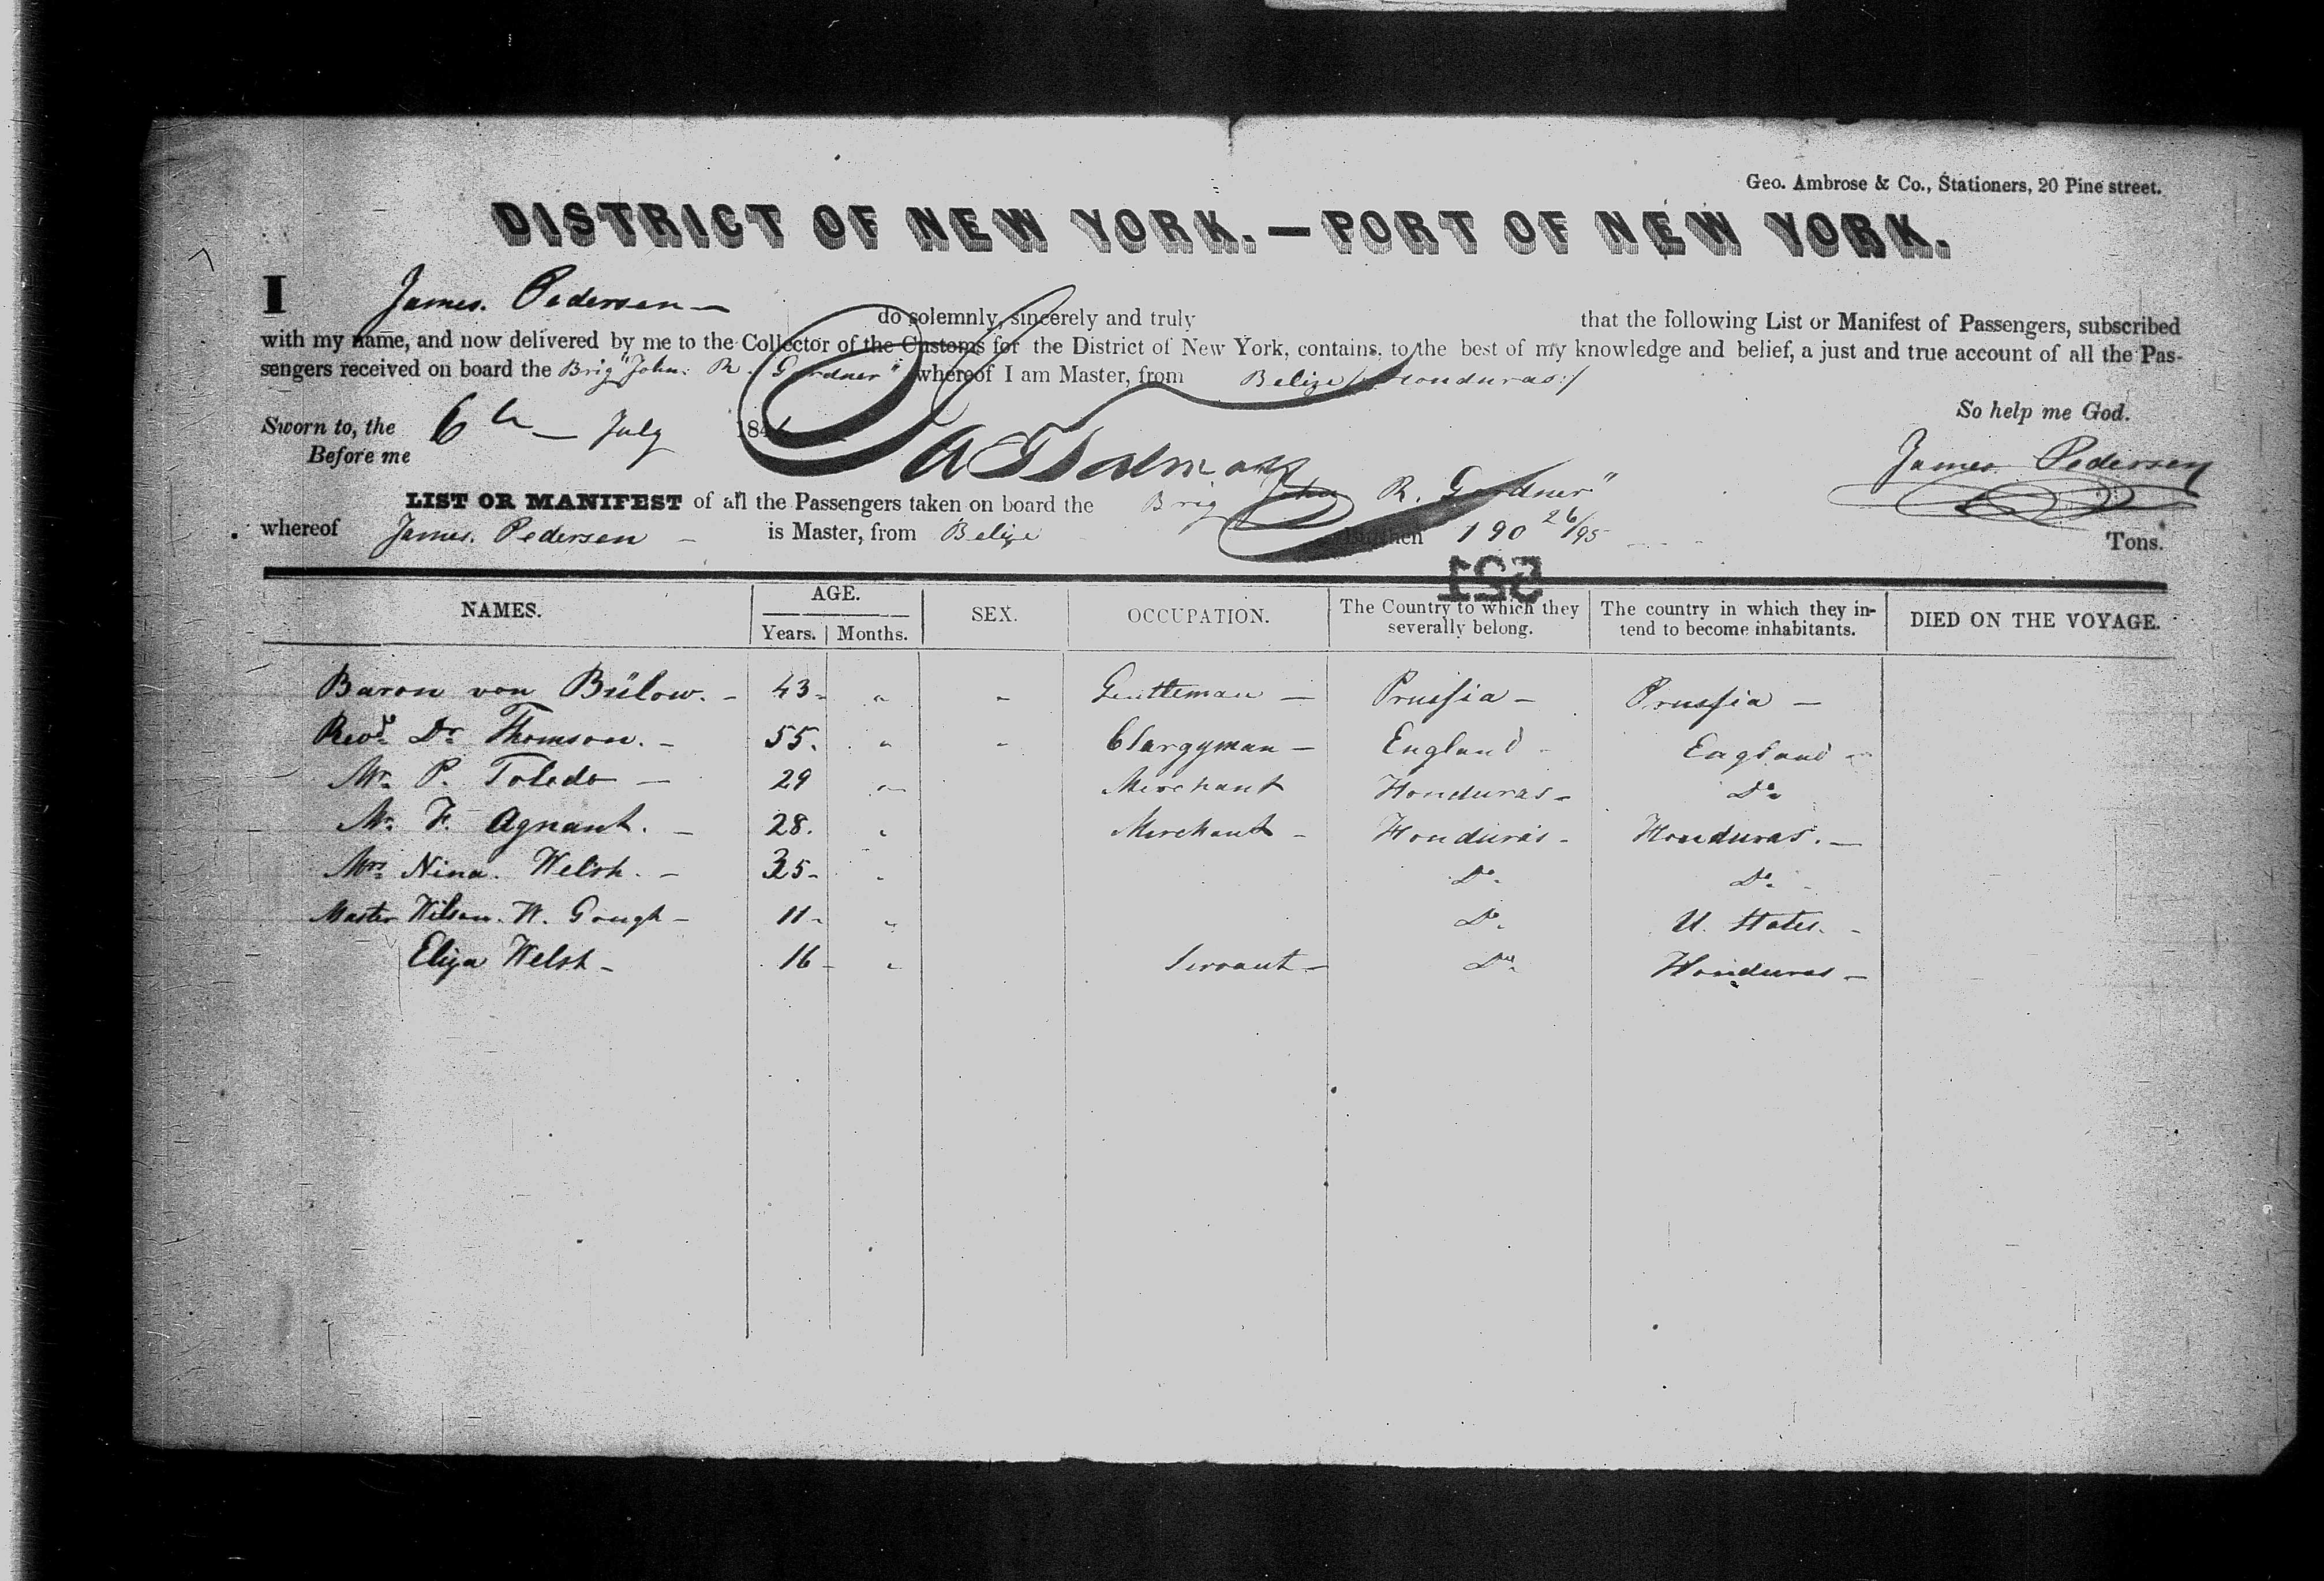 Geo. Ambrose & Co., Stationers, 20 Pine street.
DISTRICT OF NEW YORK.—PORT OF NEW YORK.
I James. Pedersen — do solemnly, sincerely and truly that the following List or Manifest of Passengers, subscribed
with my name, and now delivered by me to the Collector of the Customs for the District of New York, contains, to the best of my knowledge and belief, a just and true account of all the Pas-
sengers received on board the Brig "John. R. Gardner" whereof I am Master, from Belize /: Honduras :/
So help me God.
Sworn to, the 6th — July 184
Before me
James Pedersen
LIST OR MANIFEST of all the Passengers taken on board the Brig John R. Gardner"
whereof James. Pedersen - is Master, from Belize burthen 190 26/95 Tons.
521
NAMES. AGE. SEX. OCCUPATION. The Country to which they severally belong. The country in which they in-tend to become inhabitants. DIED ON THE VOYAGE.
Years. Months.
Baron von Bülow. - 43 - " - Gentleman — Prussia - Prussia —
Revd. Dr. Thomson. - 55. " - Clargyman — England - England -
Mr. P. Toledo — 29 " Merchant Honduras - Do.
Mr. F. Agnant. - 28. " Merchant - Honduras - Honduras. —
Mrs. Nina. Welsh. - 35 - " Do. Do. -
Master Wilson. W. Gough - 11 - " Do. U. States. -
Eliza Welsh - 16 - " Servant - Do. Honduras —